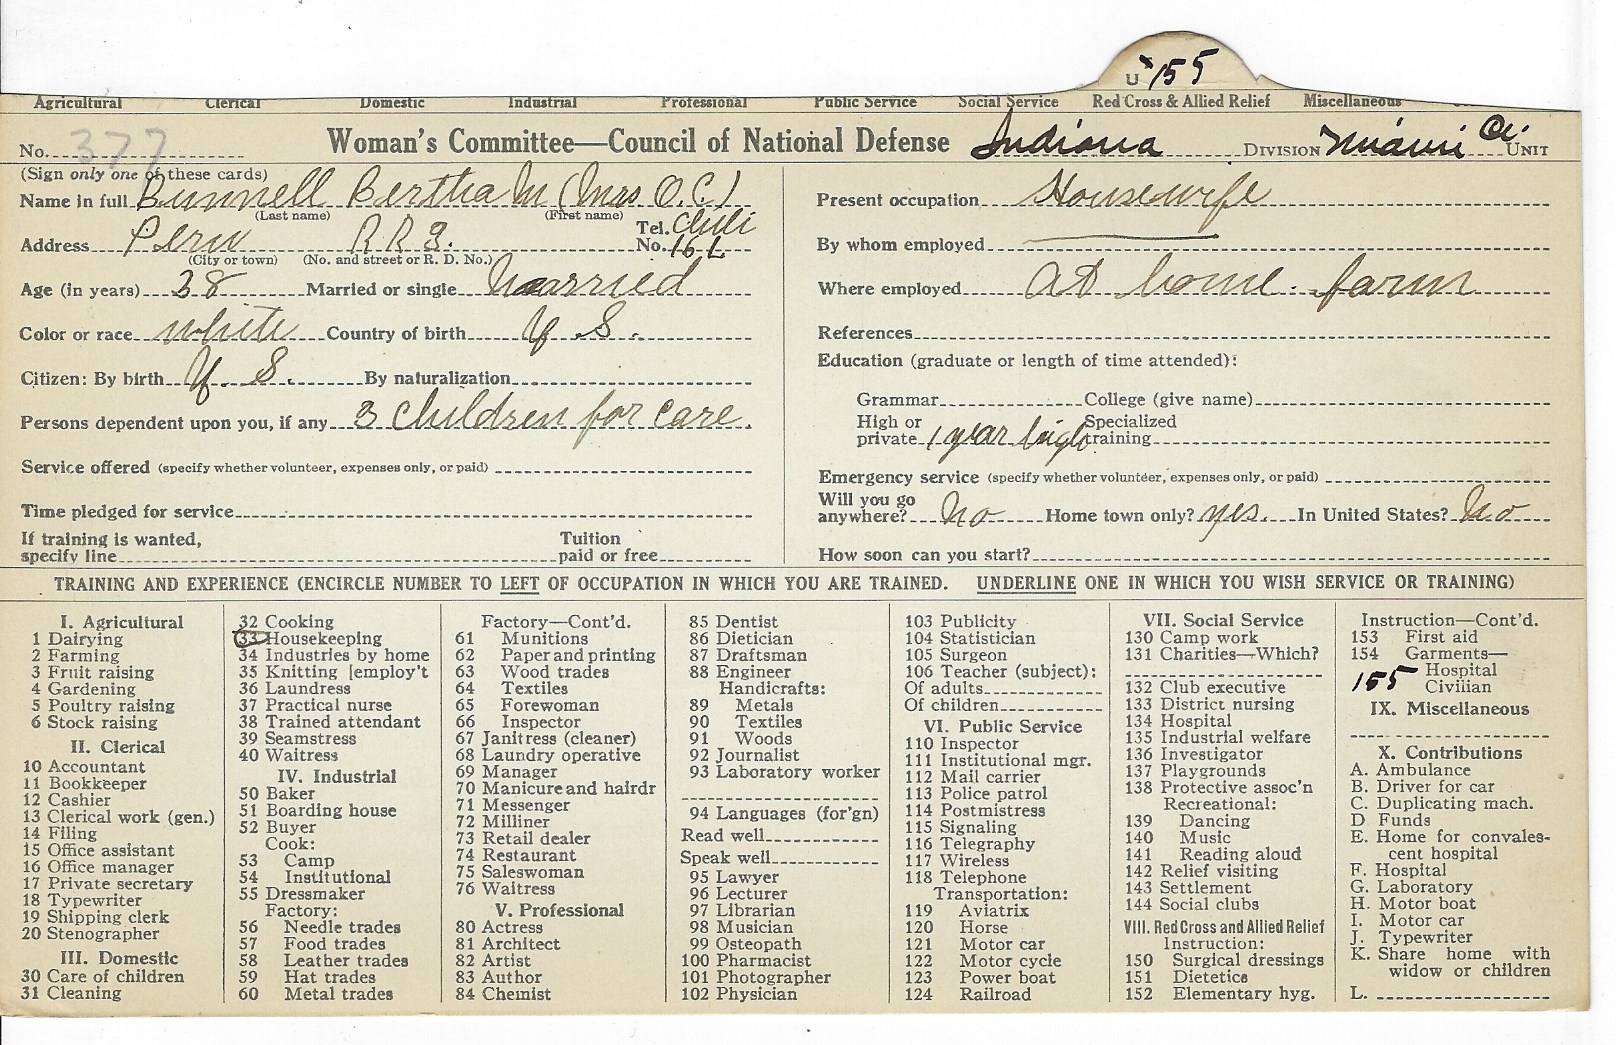 U 155
Agricultural Clerical Domestic Industrial Professional Public Service Social Service Red Cross & Allied Relief Miscellaneous
No. 377 Woman's Committee—Council of National Defense Indiana DIVISION Miami Co. UNIT
(Sign only one of these cards)
Name in full Bunnell Bertha M (Mrs O.C.)
(Last name) (First name)
Address Peru R R 3. Tel. No. Chili 16 L
(City or town) (No. and street or R. D. No.)
Age (in years) 38 Married or single Married
Color or race white Country of birth U S.
Citizen: By birth U. S. By naturalization
Persons dependent upon you, if any 3 children for care.
Service offered (specify whether volunteer, expenses only, or paid)
Time pledged for service
If training is wanted, specify line Tuition paid or free
Present occupation Housewife
By whom employed
Where employed at home. farm
References
Education (graduate or length of time attended):
Grammar College (give name)
High or private 1 year high Specialized training
Emergency service (specify whether volunteer, expenses only, or paid)
Will you go anywhere? No Home town only? yes. In United States? No
How soon can you start?
TRAINING AND EXPERIENCE (ENCIRCLE NUMBER TO LEFT OF OCCUPATION IN WHICH YOU ARE TRAINED. UNDERLINE ONE IN WHICH YOU WISH SERVICE OR TRAINING)
I. Agricultural
1 Dairying
2 Farming
3 Fruit raising
4 Gardening
5 Poultry raising
6 Stock raising
II. Clerical
10 Accountant
11 Bookkeeper
12 Cashier
13 Clerical work (gen.)
14 Filing
15 Office assistant
16 Office manager
17 Private secretary
18 Typewriter
19 Shipping clerk
20 Stenographer
III. Domestic
30 Care of children
31 Cleaning
32 Cooking
33 Housekeeping
34 Industries by home
35 Knitting [employ't
36 Laundress
37 Practical nurse
38 Trained attendant
39 Seamstress
40 Waitress
IV. Industrial
50 Baker
51 Boarding house
52 Buyer
Cook:
53 Camp
54 Institutional
55 Dressmaker
Factory:
56 Needle trades
57 Food trades
58 Leather trades
59 Hat trades
60 Metal trades
Factory—Cont'd.
61 Munitions
62 Paper and printing
63 Wood trades
64 Textiles
65 Forewoman
66 Inspector
67 Janitress (cleaner)
68 Laundry operative
69 Manager
70 Manicure and hairdr
71 Messenger
72 Milliner
73 Retail dealer
74 Restaurant
75 Saleswoman
76 Waitress
V. Professional
80 Actress
81 Architect
82 Artist
83 Author
84 Chemist
85 Dentist
86 Dietician
87 Draftsman
88 Engineer
Handicrafts:
89 Metals
90 Textiles
91 Woods
92 Journalist
93 Laboratory worker
94 Languages (for'gn)
Read well
Speak well
95 Lawyer
96 Lecturer
97 Librarian
98 Musician
99 Osteopath
100 Pharmacist
101 Photographer
102 Physician
103 Publicity
104 Statistician
105 Surgeon
106 Teacher (subject):
Of adults
Of children
VI. Public Service
110 Inspector
111 Institutional mgr.
112 Mail carrier
113 Police patrol
114 Postmistress
115 Signaling
116 Telegraphy
117 Wireless
118 Telephone
Transportation:
119 Aviatrix
120 Horse
121 Motor car
122 Motor cycle
123 Power boat
124 Railroad
VII. Social Service
130 Camp work
131 Charities—Which?
132 Club executive
133 District nursing
134 Hospital
135 Industrial welfare
136 Investigator
137 Playgrounds
138 Protective assoc'n
Recreational:
139 Dancing
140 Music
141 Reading aloud
142 Relief visiting
143 Settlement
144 Social clubs
VIII. Red Cross and Allied Relief
Instruction:
150 Surgical dressings
151 Dietetics
152 Elementary hyg.
Instruction—Cont'd.
153 First aid
154 Garments—
Hospital
155 Civilian
IX. Miscellaneous
X. Contributions
A. Ambulance
B. Driver for car
C. Duplicating mach.
D Funds
E. Home for convales-
cent hospital
F. Hospital
G. Laboratory
H. Motor boat
I. Motor car
J. Typewriter
K. Share home with
widow or children
L.